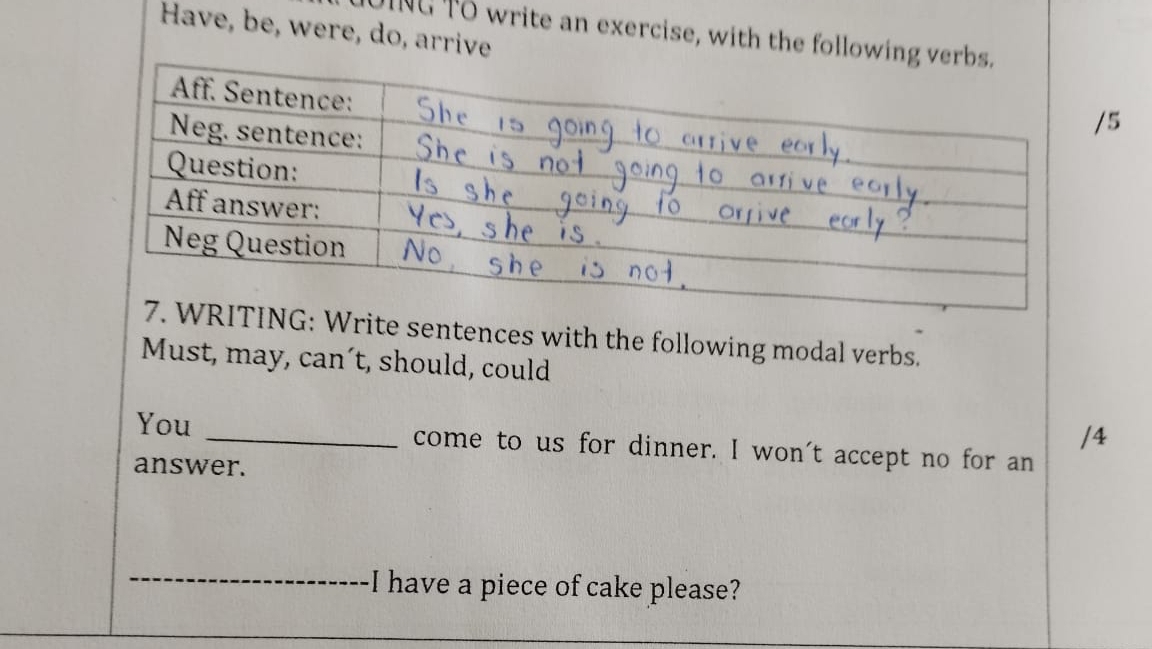 GOING TO write an exercise, with the following verbs.
Have, be, were, do, arrive
/5
Aff. Sentence: She is going to arrive early.
Neg. sentence: She is not going to arrive early.
Question: Is she going to arrive early?
Aff answer: Yes, she is.
Neg Question No, she is not.
7. WRITING: Write sentences with the following modal verbs.
Must, may, can´t, should, could
/4
You ____________ come to us for dinner. I won´t accept no for an
answer.
----------------------I have a piece of cake please?